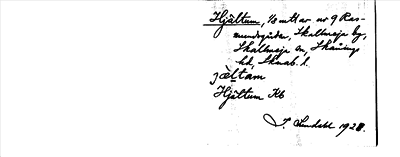 Hjältum, 1/6 mtl av nr 9 Ras-
mundgården, Skallmeja by,
Skallmeja sn, Skånings
hd, Skarab. l.
jæ̀ltam
Hjältum Kb
S. Lundahl 1928.